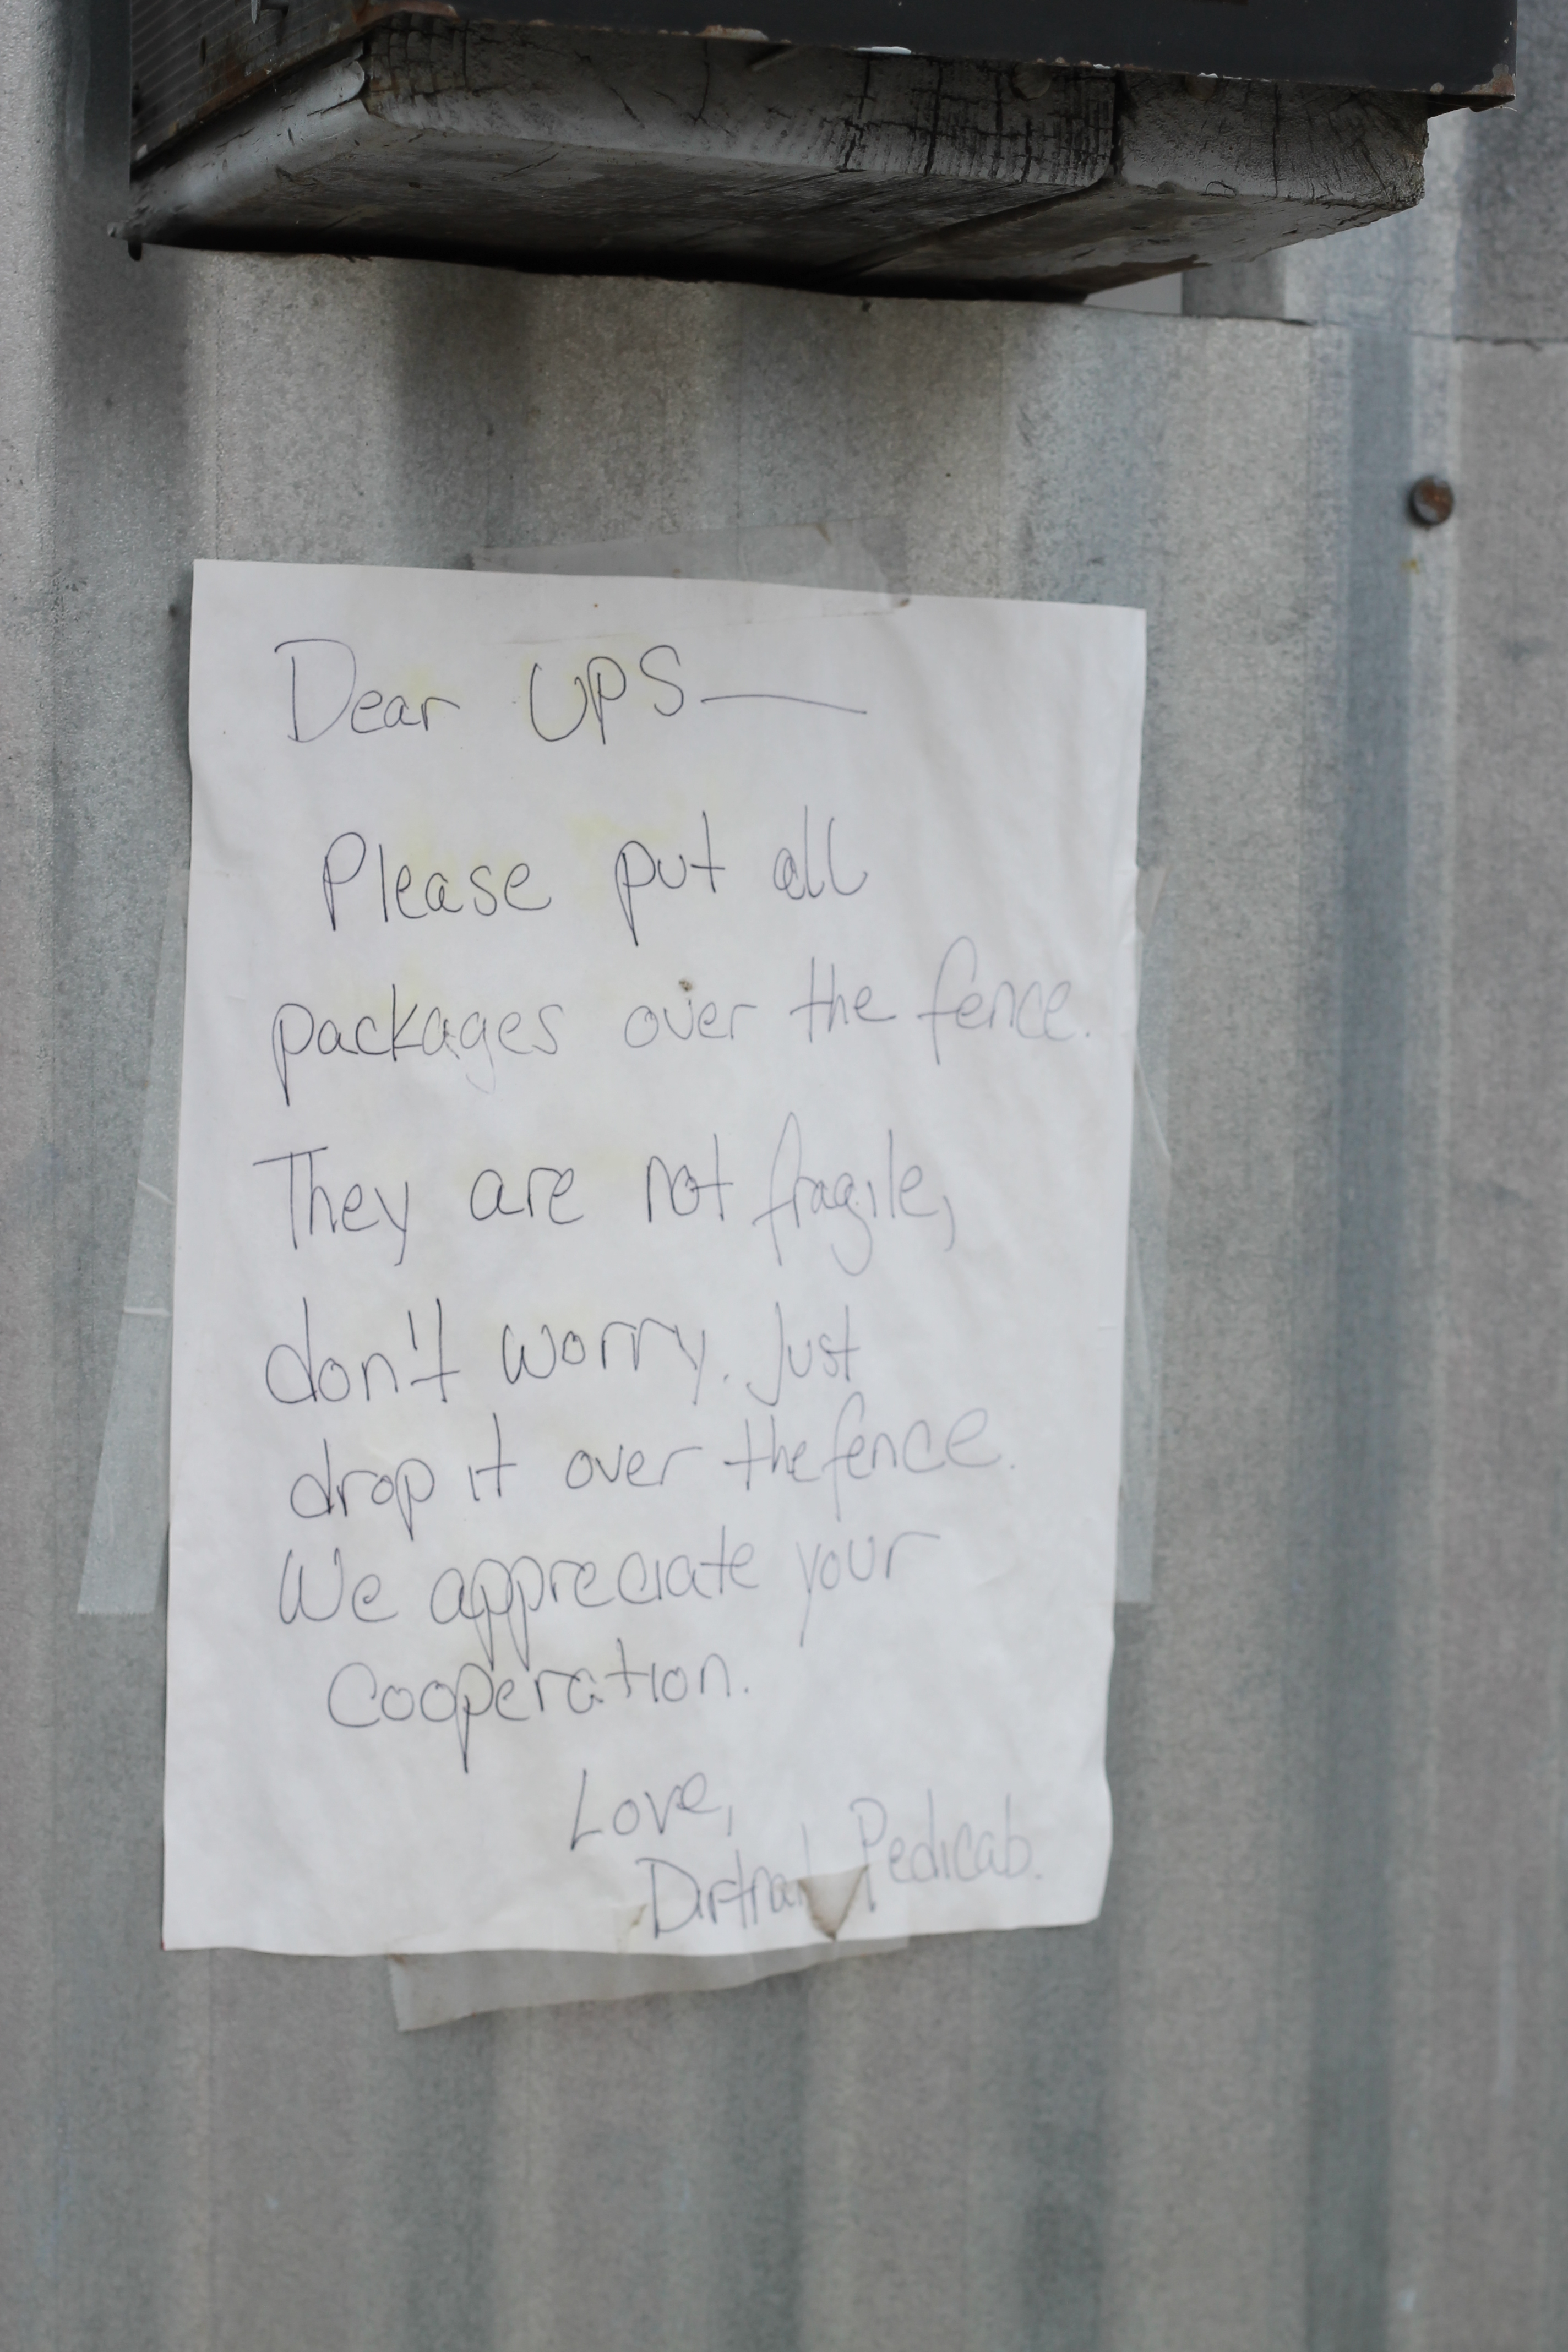 Dear UPS—
Please put all
packages over the fence.
They are not fragile,
don't worry. Just
drop it over the fence.
We appreciate your
Cooperation.
Love,
Pedicab.